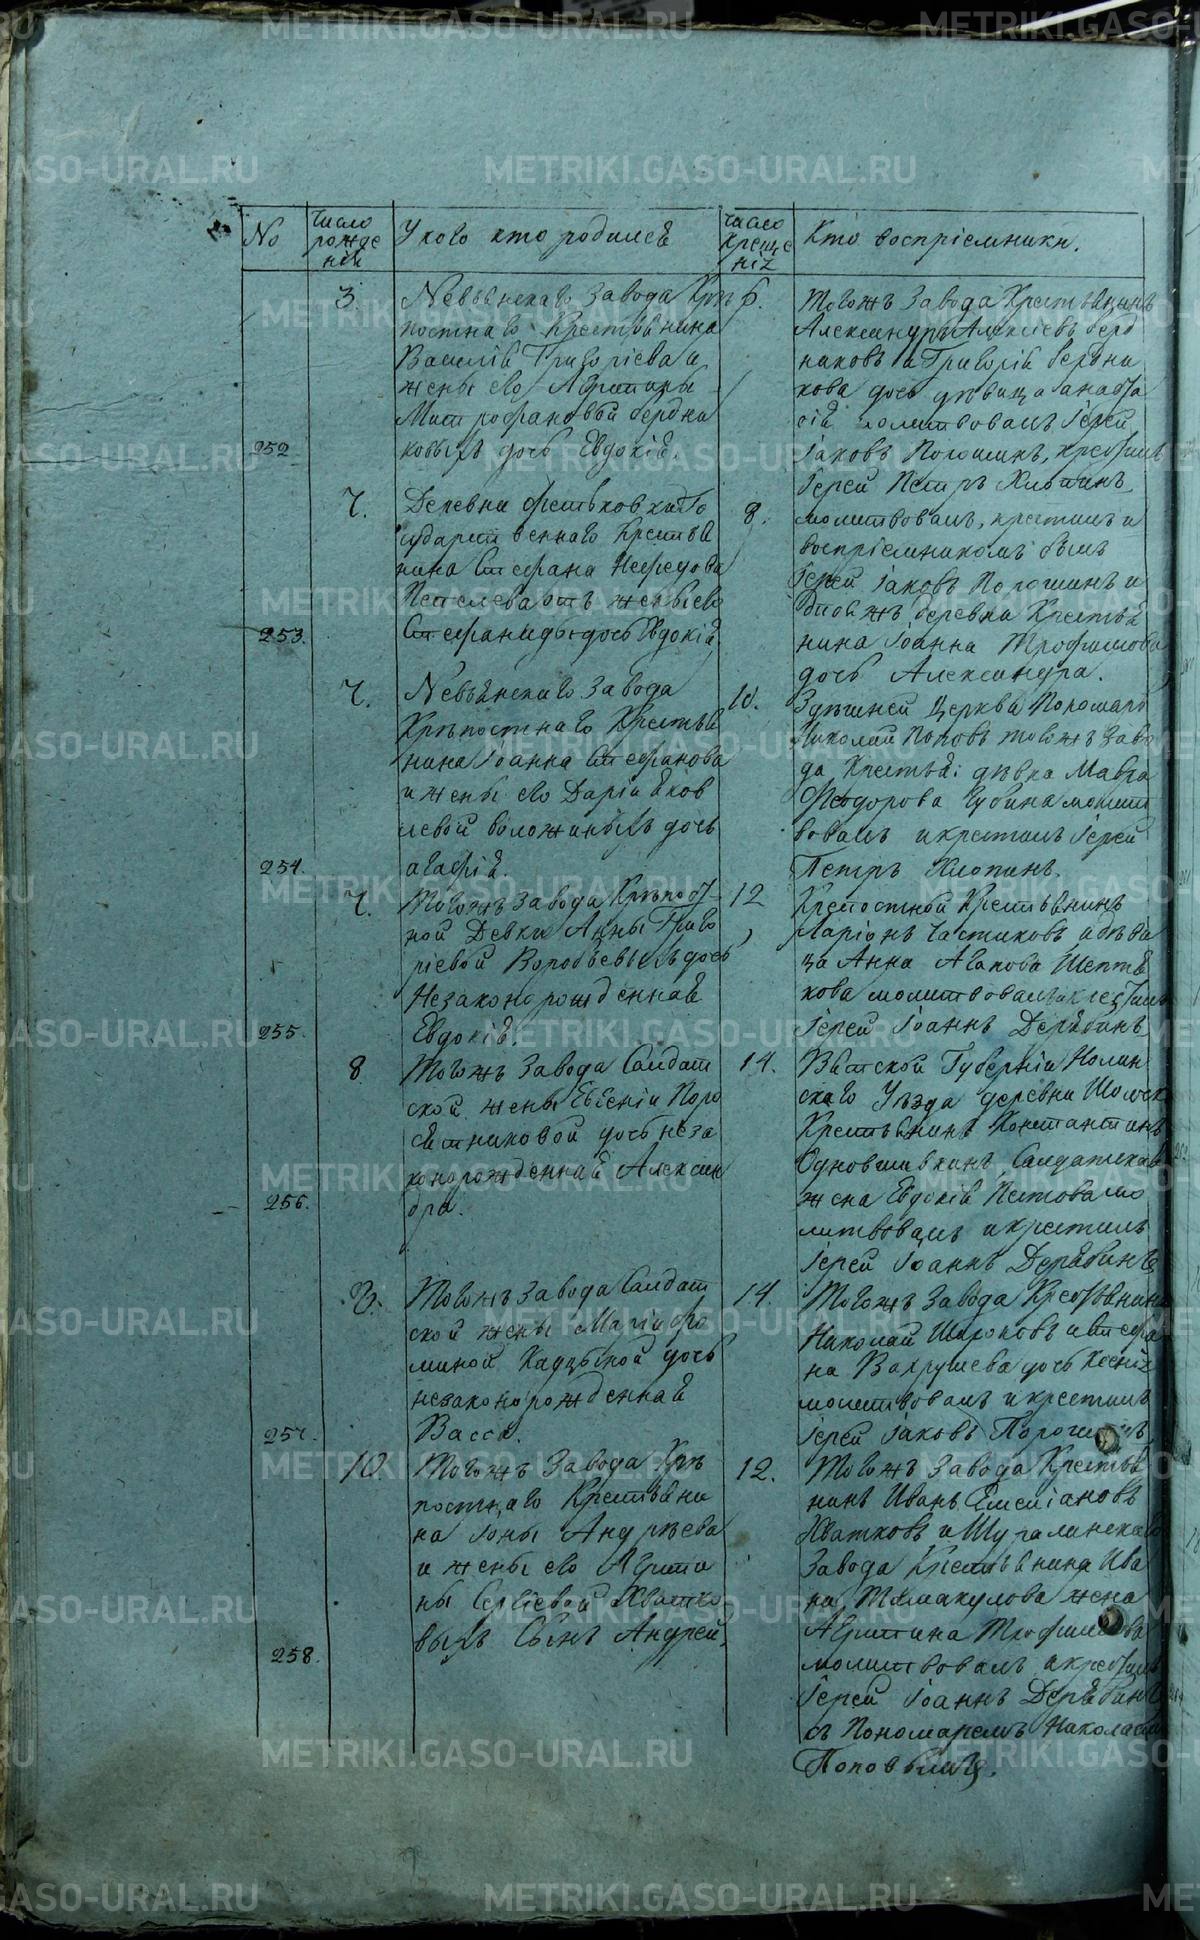 No
число рожденія
У кого кто родился
число крещенія
Кто воспріємники.
252
3.
Невьянскаго Завода Крѣ
постнаго Крестьянина
Василія Григоріева и
жены его Агрипины
Митрофановой бердни
ковыхъ дочь Евдокія.
6.
тогожъ Завода Крестьянинъ
Александръ Алексіевъ берд
никовъ и Григорій бердни
кова дочь дѣвица анаста
сія молитвовалъ Іерей
Іаковъ Порошинъ, крестилъ
Іерей Петръ Хлопинъ
253.
7.
Деревни
сударственнаго Крестья
нина Стефана Нефедова
Пепелева отъ жены его
Стефаниды дочь Евдокія.
8.
молитвовалъ, крестилъ и
воспріємникомъ былъ
Іерей Іаковъ Порошинъ и
тойжъ деревни Крестья
нина Іоанна Трофимова
дочь Александра.
254.
7.
Невьянскаго Завода
Крѣпостнаго Крестья
нина Іоанна Стефанова
и жены его Даріи Яков
левой воложиныхъ дочь
агафія.
10.
Здѣшней Церкви Пономарь
Николай Поповъ тогожъ Заво
да Крестья: дѣвка Мавра
Феодорова Губина молит
вовалъ и крестилъ Іерей
Петръ Хлопинъ.
255.
7.
Тогожъ Завода Крѣпост
ной Девки Анны Григо
ріевой Воробьевыхъ дочь
Незаконорожденная
Евдокія.
12
Крепостной Крестьянинъ
Ларіонъ Частиковъ и дѣви
ца Анна Агапова Шептя
кова молитвовалъ и крестилъ
Іерей Іоаннъ Дерябинъ
256.
8
Тогожъ Завода Салдат
ской жены Евгеніи Поро
сятниковой дочь неза
конорожденная Алексан
дра.
14.
Вятской Губерніи Нолин
скаго Уѣзда деревни
Крестьянинъ Константинъ
Салдатская
жена Евдокія Пестова мо
литвовалъ и крестилъ
Іерей Іоаннъ Дерябинъ
257.
Тогожъ Завода Салдат
ской жены Маріи Фо
миной дочь
незаконорожденная
Васса.
14.
Тогожъ Завода Крестьянинъ
Николай Широковъ и Стефа
на Вахрушева дочь Ксенія
молитвовалъ и крестилъ
Іерей Іаковъ Порошинъ
258.
10
Тогожъ Завода Крѣ
постнаго Крестьяни
на Іоны Андрѣева
и жены его Агрипи
ны Сергіевой Хватко
выхъ Сынъ Андрей.
12.
Тогожъ Завода Крестья
нинъ Иванъ Емеліановъ
Хватковъ и Шуралинскаго
Завода Крестьянина Ива
на Тимакулова жена
Агрипина Трофимова
молитвовалъ и крестилъ
Іерей Іоаннъ Дерябинъ
съ Пономаремъ Николаемъ
Поповымъ.
METRIKI.GASO-URAL.RU